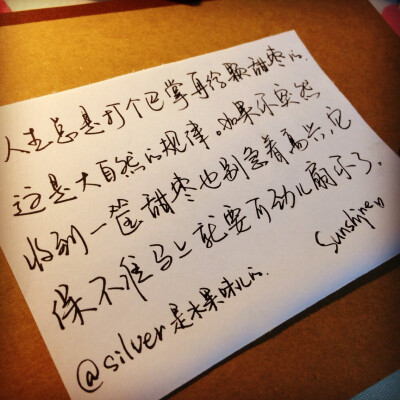 人生总是打个巴掌再给颗甜枣的.
这是大自然的规律。如果你突然
收到一筐甜枣也别急着高兴,它
保不准马上就要可劲儿扇你了.
Sunshine
@silver是水果味儿的.